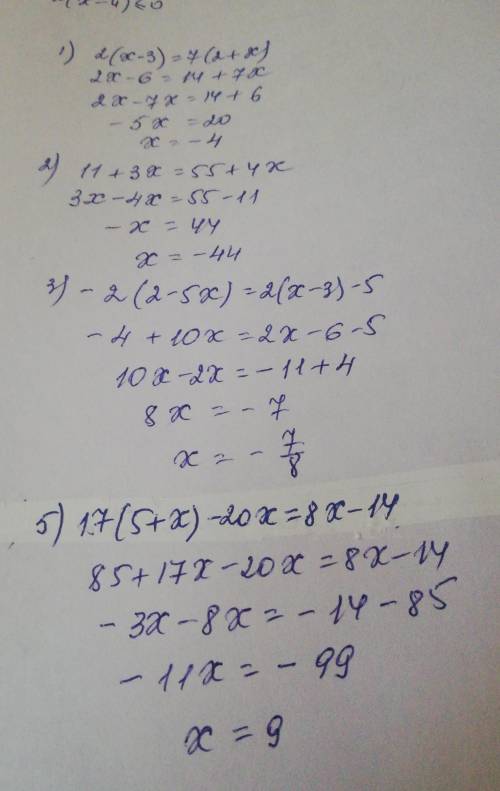 (x-4)≤0
1) 2(x-3)=7(2+x)
2x-6=14+7x
2x-7x=14+6
-5x=20
x=-4
2) 11+3x=55+4x
3x-4x=55-11
-x=44
x=-44
3) -2(2-5x)=2(x-3)-5
-4+10x=2x-6-5
10x-2x=-11+4
8x=-7
x=-7/8
5) 17(5+x)-20x=8x-14
85+17x-20x=8x-14
-3x-8x=-14-85
-11x=-99
x=9